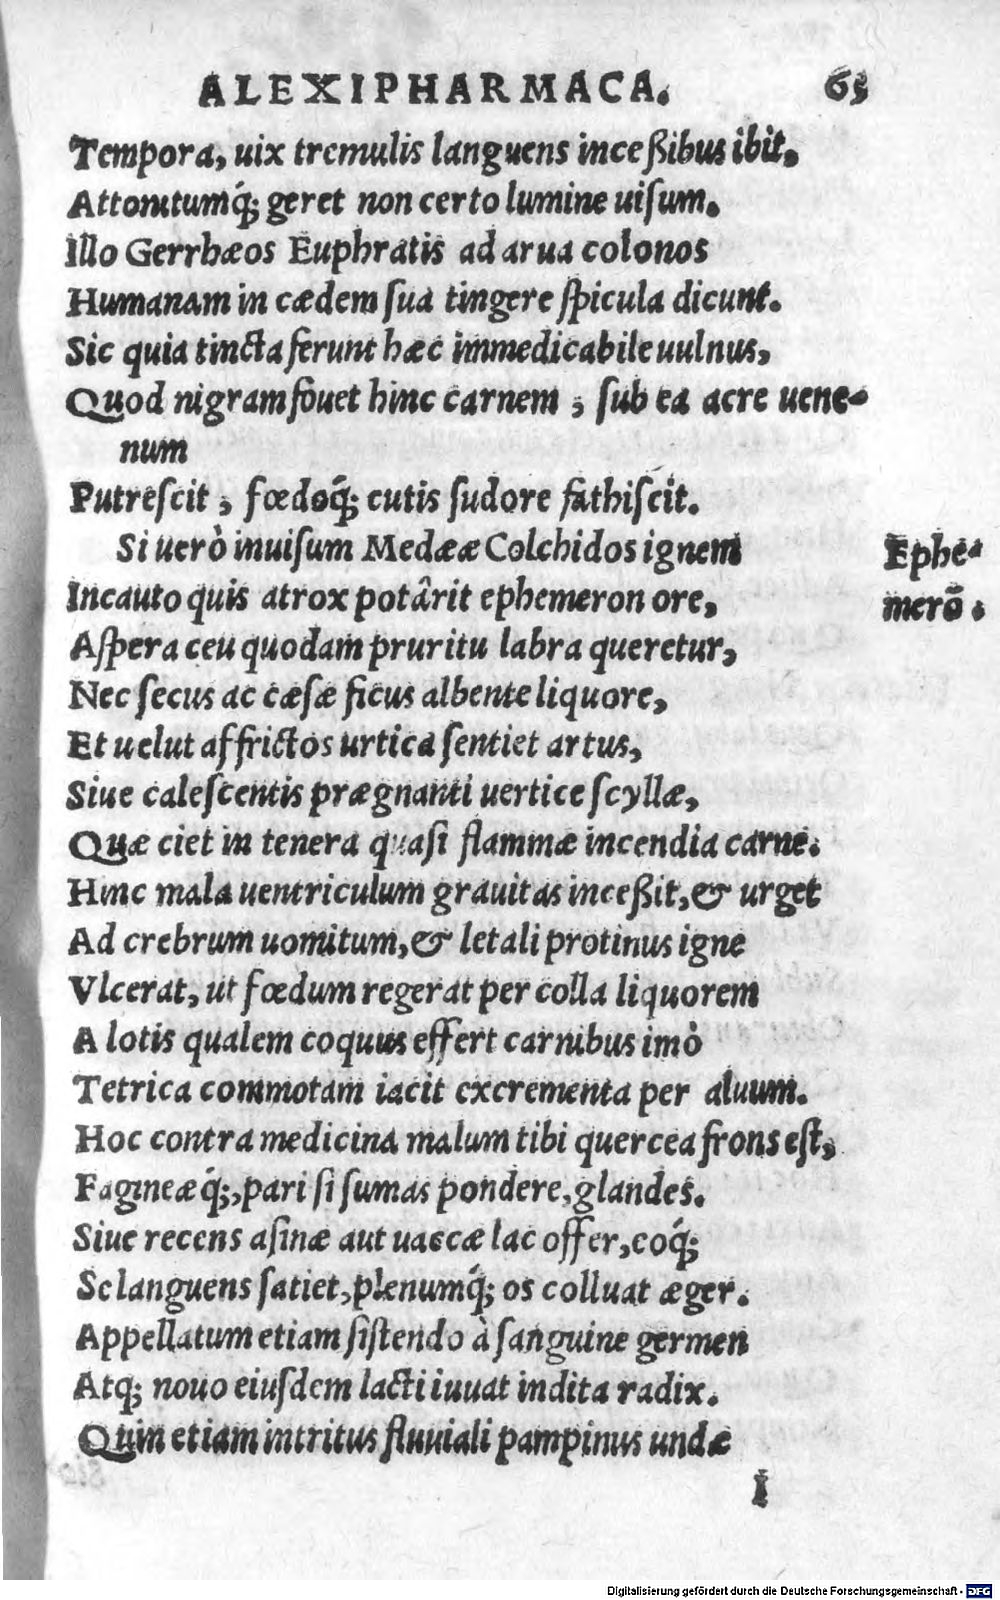 ALEXIPHARMACA. 65
Tempora, uix tremulis languens inceßibus ibit,
Attonitumq́; geret non certo lumine uiſum.
Illo Gerrhæos Euphratis ad arua colonos
Humanam in cædem ſua tingere ſpicula dicunt.
Sic quia tincta ferunt hæc immedicabile uulnus,
Quod nigram fouet hinc carnem, ſub ea acre uene-
num
Putreſcit, fœdoq́; cutis ſudore fathiſcit.
Si uerò inuiſum Medææ Colchidos ignem
Ephe-
Incauto quis atrox potârit ephemeron ore,
merō.
Aſpera ceu quodam pruritu labra queretur,
Nec ſecus ac cæſæ ficus albente liquore,
Et uelut affrictos urtica ſentiet artus,
Siue caleſcentis prægnanti uertice ſcyllæ,
Quæ ciet in tenera quaſi flammæ incendia carne.
Hinc mala uentriculum grauitas inceßit, & urget
Ad crebrum uomitum, & letali protinus igne
Vlcerat, ut fœdum regerat per colla liquorem
A lotis qualem coquus effert carnibus imò
Tetrica commotam iacit excrementa per aluum.
Hoc contra medicina malum tibi quercea frons eſt,
Fagineæq́;, pari ſi ſumas pondere, glandes.
Siue recens aſinæ aut uaccæ lac offer, eoq́;
Se languens ſatiet, plenumq́; os colluat æger.
Appellatum etiam ſiſtendo à ſanguine germen
Atq; nouo eiuſdem lacti iuuat indita radix.
Quin etiam intritus fluuiali pampinus undæ
I
Digitalisierung gefördert durch die Deutsche Forschungsgemeinschaft - DFG